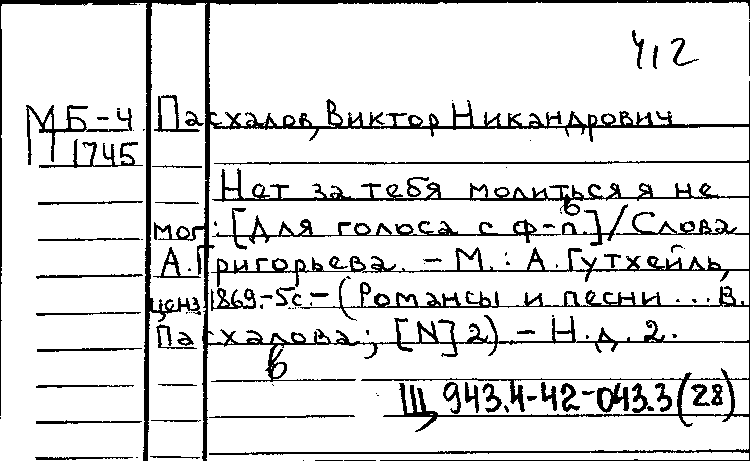 Ч12
МБ-4 Пасхалов, Виктор Никандрович
1745
Нет за тебя молиться я не
мог: [Для голоса с ф-п.] / Слова
в
А. Григорьева. – М.: А. Гутхейль,
ценз. 1869.-5с.- (Романсы и песни ... В.
Пасхалова; [N] 2). – Н.д. 2.
в
Щ 943.4-42-043.3(28)